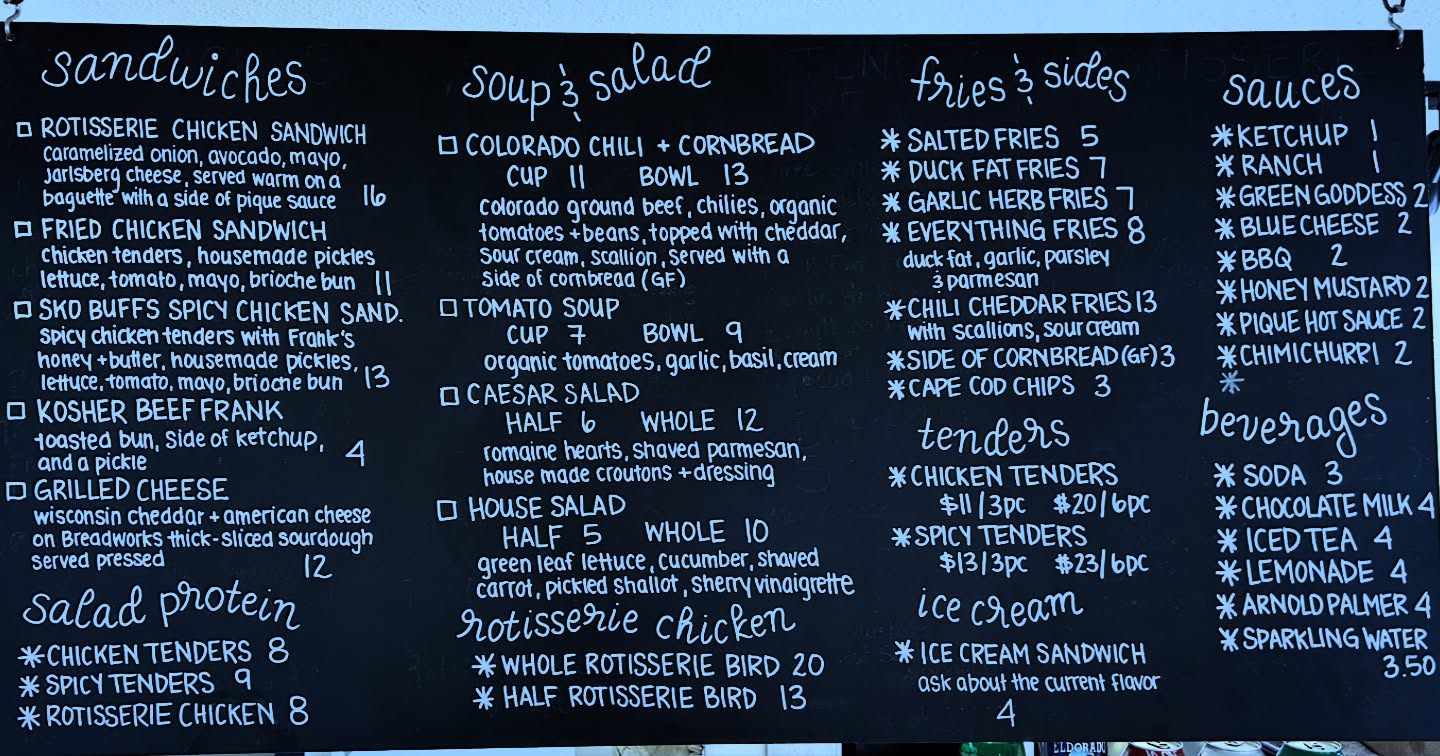 sandwiches
ROTISSERIE CHICKEN SANDWICH
caramelized onion, avocado, mayo,
jarlsberg cheese, served warm on a
baguette with a side of pique sauce 16
FRIED CHICKEN SANDWICH
chicken tenders, housemade pickles
lettuce, tomato, mayo, brioche bun 11
SKO BUFFS SPICY CHICKEN SAND.
spicy chicken tenders with Frank's
honey + butter, housemade pickles,
lettuce, tomato, mayo, brioche bun 13
KOSHER BEEF FRANK
toasted bun, side of ketchup, 4
and a pickle
GRILLED CHEESE
wisconsin cheddar + american cheese
on Breadworks thick-sliced sourdough
served pressed 12
salad protein
*CHICKEN TENDERS 8
*SPICY TENDERS 9
*ROTISSERIE CHICKEN 8
soup & salad
COLORADO CHILI + CORNBREAD
CUP 11 BOWL 13
colorado ground beef, chilies, organic
tomatoes + beans, topped with cheddar,
sour cream, scallion, served with a
side of cornbread (GF)
TOMATO SOUP
CUP 7 BOWL 9
organic tomatoes, garlic, basil, cream
CAESAR SALAD
HALF 6 WHOLE 12
romaine hearts, shaved parmesan,
house made croutons + dressing
HOUSE SALAD
HALF 5 WHOLE 10
green leaf lettuce, cucumber, shaved
carrot, pickled shallot, sherry vinaigrette
rotisserie chicken
* WHOLE ROTISSERIE BIRD 20
* HALF ROTISSERIE BIRD 13
fries & sides
* SALTED FRIES 5
* DUCK FAT FRIES 7
* GARLIC HERB FRIES 7
* EVERYTHING FRIES 8
duck fat, garlic, parsley
& parmesan
*CHILI CHEDDAR FRIES 13
with scallions, sour cream
*SIDE OF CORNBREAD (GF) 3
*CAPE COD CHIPS 3
tenders
*CHICKEN TENDERS
$11/3pc $20/6pc
*SPICY TENDERS
$13/3pc $23/6pc
ice cream
* ICE CREAM SANDWICH
ask about the current flavor
4
sauces
*KETCHUP 1
*RANCH 1
*GREEN GODDESS 2
*BLUE CHEESE 2
*BBQ 2
*HONEY MUSTARD 2
*PIQUE HOT SAUCE 2
*CHIMICHURRI 2
*
beverages
* SODA 3
*CHOCOLATE MILK 4
* ICED TEA 4
* LEMONADE 4
* ARNOLD PALMER 4
* SPARKLING WATER
3.50
ELDORADO